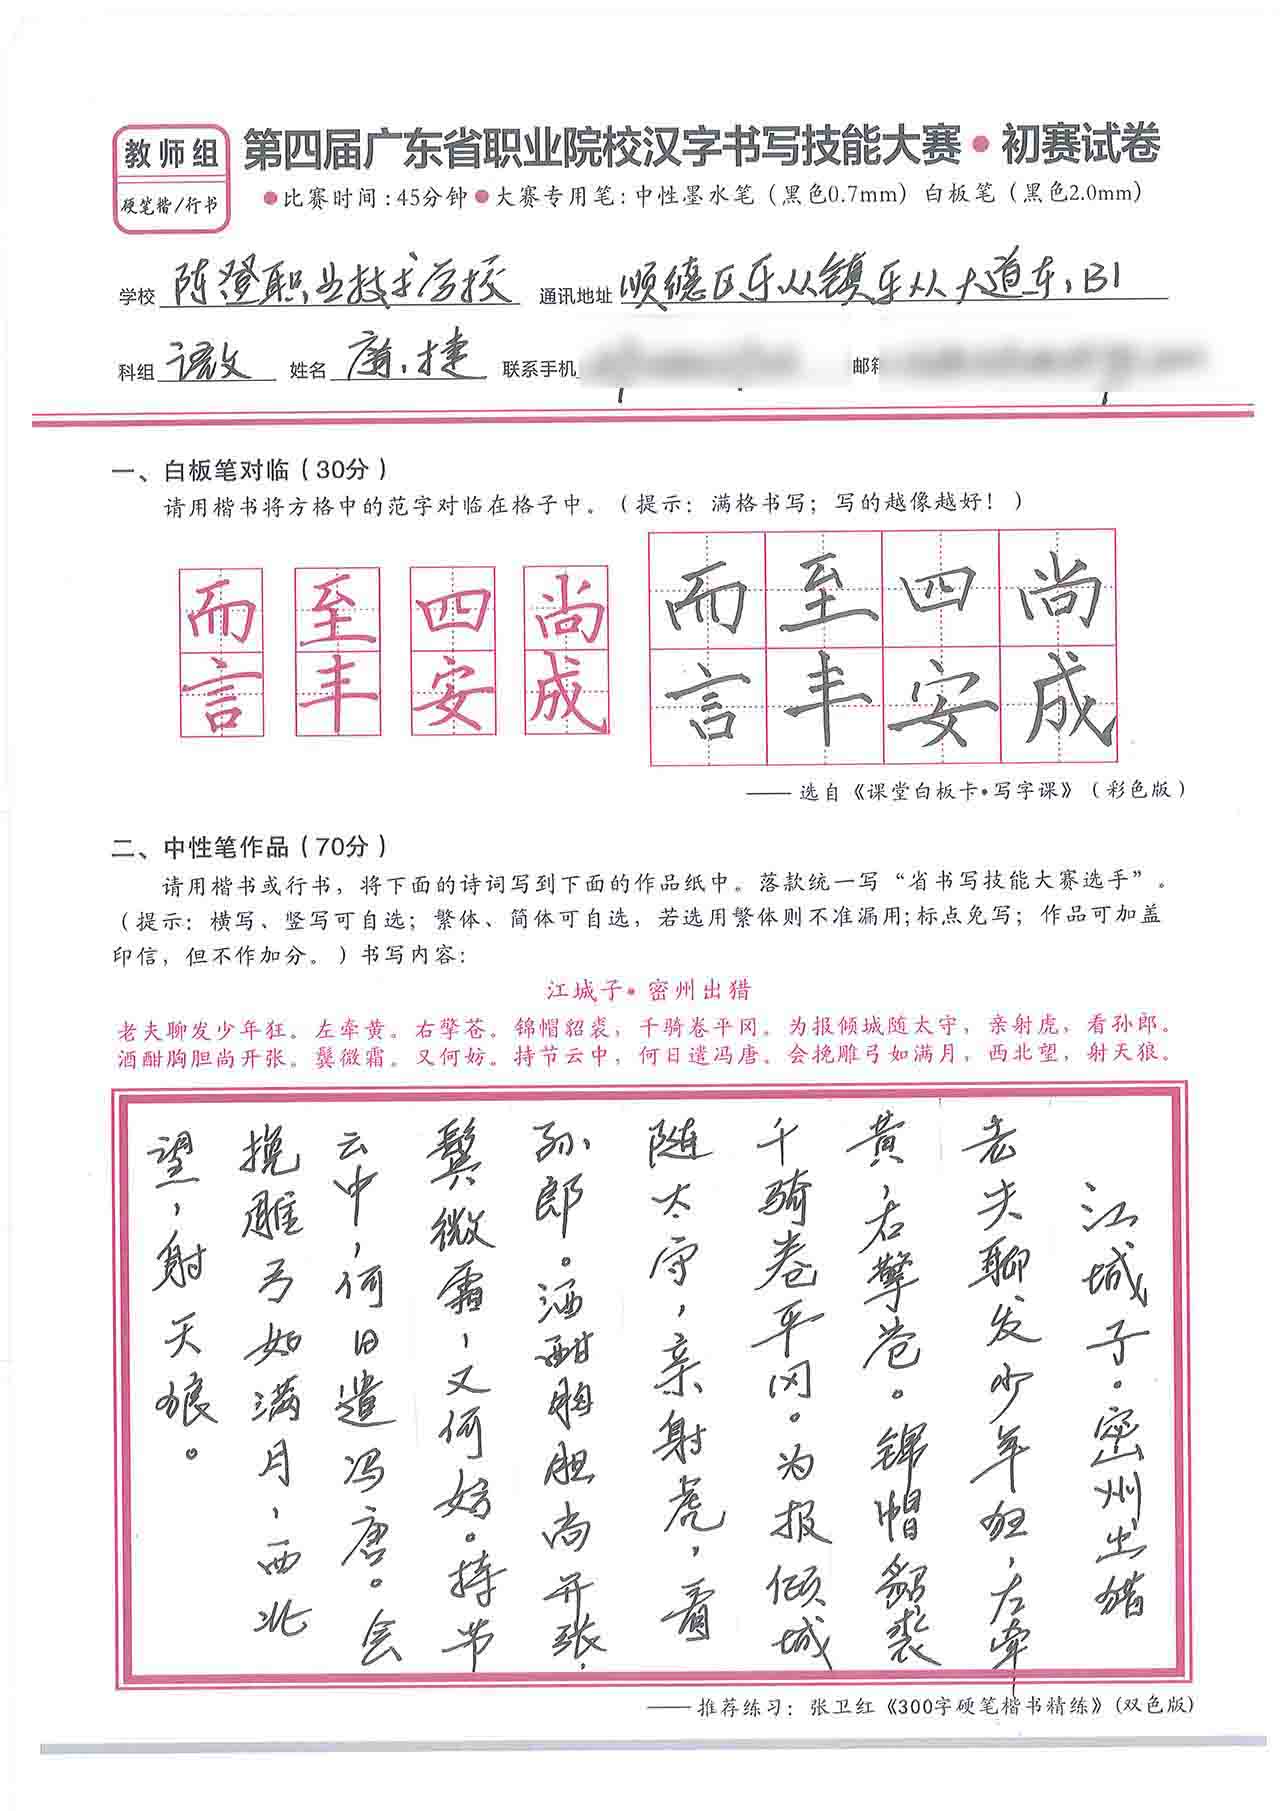 教师组
硬笔楷/行书
第四届广东省职业院校汉字书写技能大赛•初赛试卷
●比赛时间:45分钟●大赛专用笔:中性墨水笔(黑色0.7mm)白板笔(黑色2.0mm)
学校 陈登职业技术学校 通讯地址 顺德区乐从镇乐从大道东,B1
科组 语文 姓名 捷 联系手机 邮箱
一、白板笔对临(30分)
请用楷书将方格中的范字对临在格子中。(提示:满格书写;写的越像越好!)
而至四尚 而至四尚
言丰安成 言丰安成
——选自《课堂白板卡•写字课》(彩色版)
二、中性笔作品(70分)
请用楷书或行书,将下面的诗词写到下面的作品纸中。落款统一写“省书写技能大赛选手”。
(提示:横写、竖写可自选;繁体、简体可自选,若选用繁体则不准漏用;标点免写;作品可加盖
印信,但不作加分。)书写内容:
江城子•密州出猎
老夫聊发少年狂。左牵黄。右擎苍。锦帽貂裘,千骑卷平冈。为报倾城随太守,亲射虎,看孙郎。
酒酣胸胆尚开张。鬓微霜。又何妨。持节云中,何日遣冯唐。会挽雕弓如满月,西北望,射天狼。
江城子。密州出猎
老夫聊发少年狂,左牵
黄,右擎苍。锦帽貂裘
千骑卷平冈。为报倾城
随太守,亲射虎,看
孙郎。酒酣胸胆尚开张,
鬓微霜,又何妨。持节
云中,何日遣冯唐。会
挽雕弓如满月,西北
望,射天狼。
——推荐练习:张卫红《300字硬笔楷书精练》(双色版)